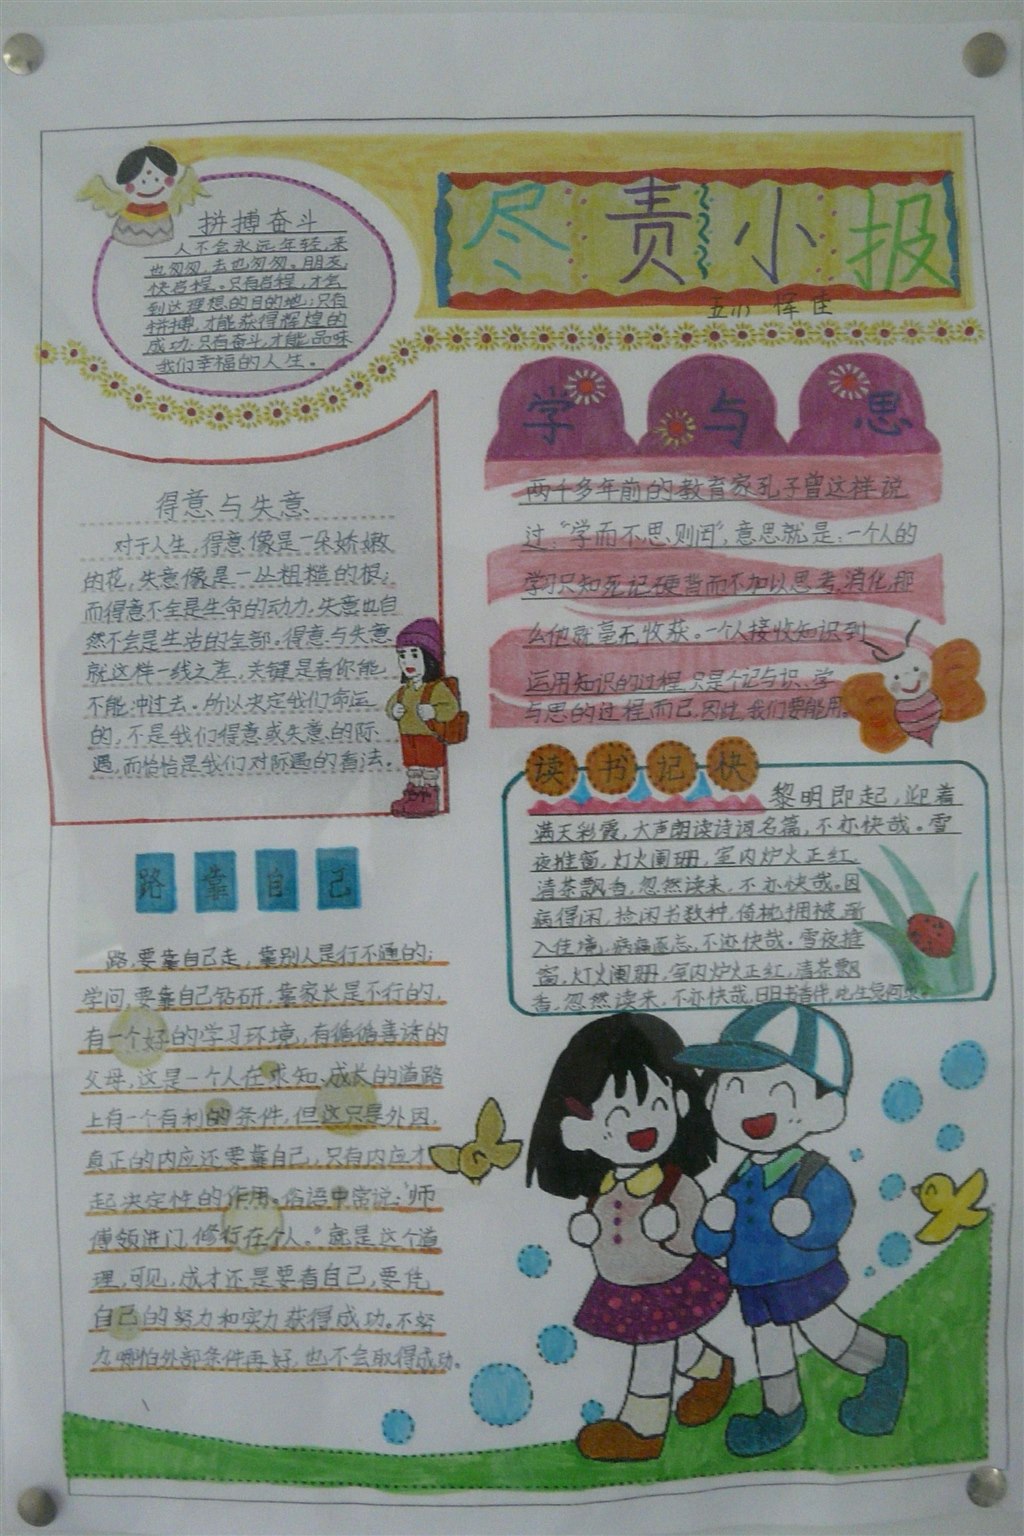 尽责小报
五(1) 恽佳
拼搏奋斗
人不会永远年轻,来
也匆匆,去也匆匆。朋友,
快启程。只有启程,才会
到达理想的目的地;只有
拼搏,才能获得辉煌的
成功;只有奋斗,才能品味
我们幸福的人生。
得意与失意
对于人生,得意像是一朵娇嫩
的花,失意像是一丛粗糙的根;
而得意不全是生命的动力,失意也自
然不会是生活的全部。得意与失意
就这样一线之差,关键是看你能
不能冲过去。所以决定我们命运
的,不是我们得意或失意的际
遇,而恰恰是我们对际遇的看法。
路靠自己
路,要靠自己走,靠别人是行不通的;
学问,要靠自己钻研,靠家长是不行的,
有一个好的学习环境,有循循善诱的
父母,这是一个人在求知、成长的道路
上有一个有利的条件,但这只是外因,
真正的内应还要靠自己,只有内应才
起决定性的作用。俗语中常说:“师
傅领进门,修行在个人。”就是这个道
理,可见,成才还是要看自己,要凭
自己的努力和实力获得成功。不努
力,哪怕外部条件再好,也不会取得成功。
学与思
两千多年前的教育家孔子曾这样说
过:“学而不思则罔”,意思就是:一个人的
学习只知死记硬背而不加以思考,消化,那
么他就毫无收获。一个人接收知识到
运用知识的过程,只是个记与识、学
与思的过程而已,因此,我们要能用
读书记快
黎明即起,迎着
满天彩霞,大声朗读诗词名篇,不亦快哉。雪
夜推窗,灯火阑珊,室内炉火正红,
清茶飘香,忽然读来,不亦快哉。因
病得闲,捡闲书数种,倚枕拥被,渐
入佳境,病痛遂忘,不亦快哉。雪夜推
窗,灯火阑珊,室内炉火正红,清茶飘
香,忽然读来,不亦快哉,日日书香伴,此生复何求。